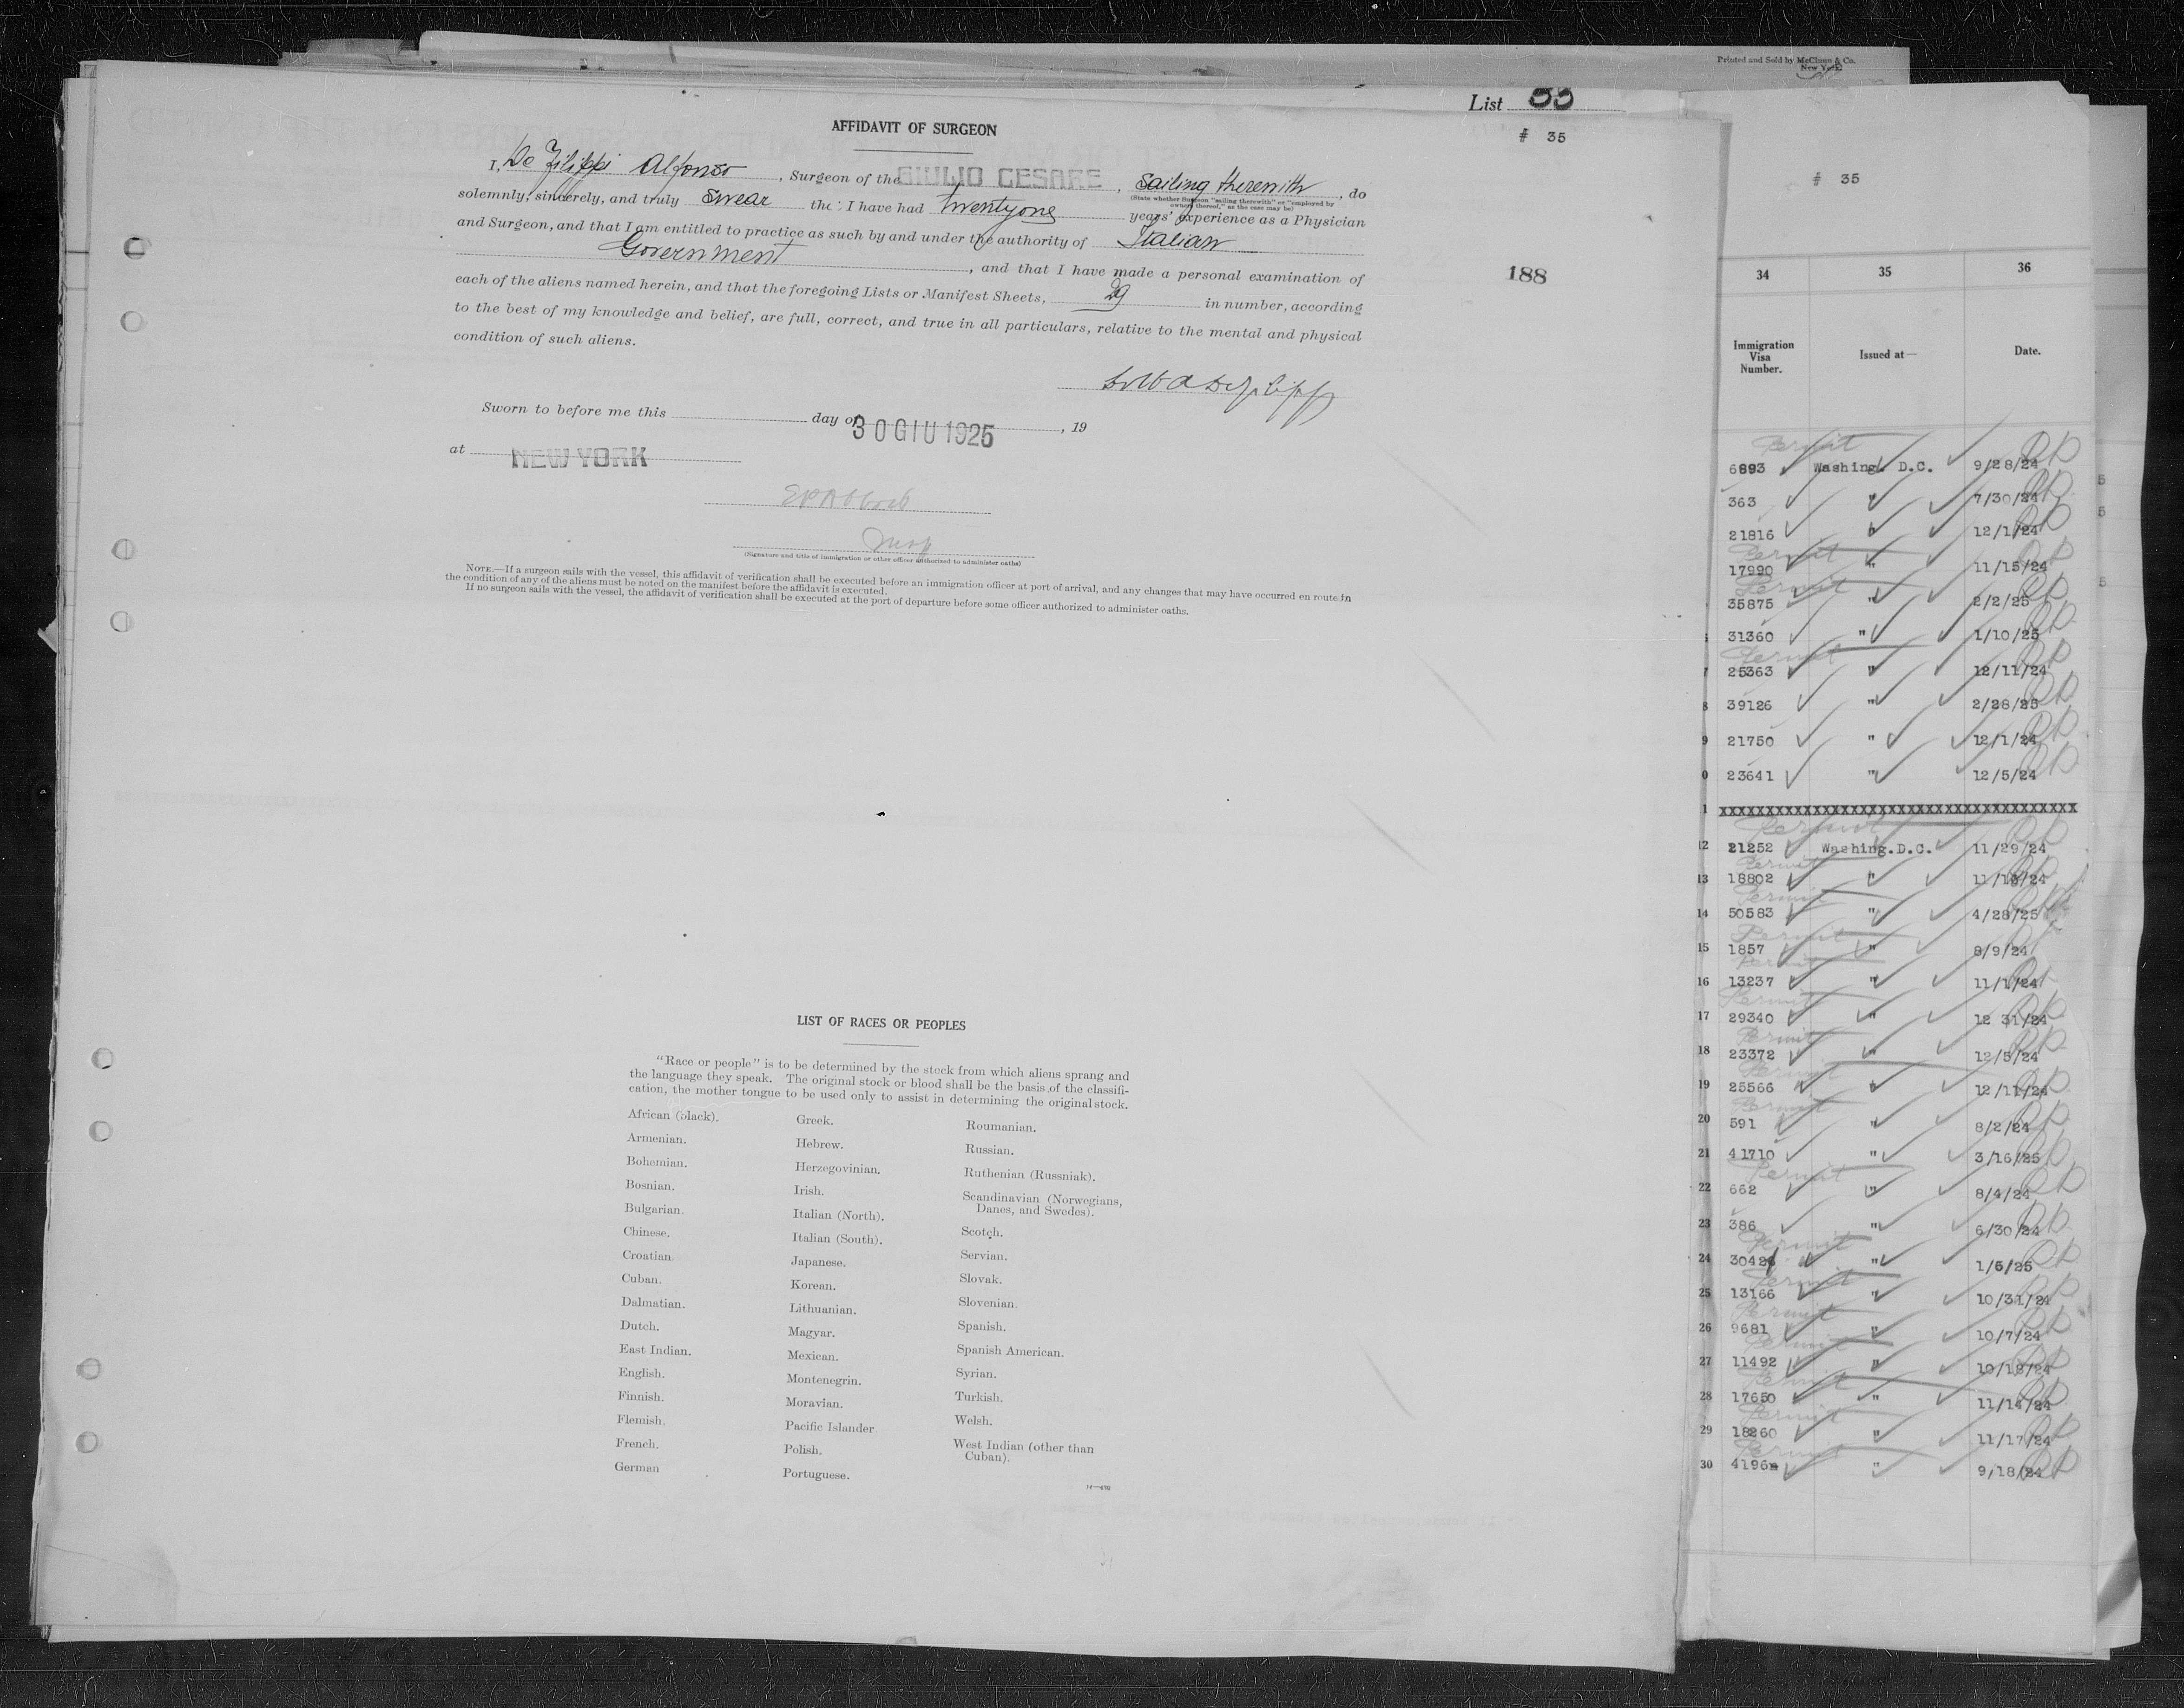 Printed and Sold by McClunn & Co.
New York
List 35
# 35
AFFIDAVIT OF SURGEON
I, De Filippi Alfonso, Surgeon of the GIULIO CESARE, Sailing therewith, do
(State whether Surgeon "sailing therewith" or "employed by
owners thereof," as the case may be)
solemnly, sincerely, and truly swear that I have had twentyone years' experience as a Physician
and Surgeon, and that I am entitled to practice as such by and under the authority of Italian
Government, and that I have made a personal examination of
each of the aliens named herein, and that the foregoing Lists or Manifest Sheets, 29 in number, according
to the best of my knowledge and belief, are full, correct, and true in all particulars, relative to the mental and physical
condition of such aliens.
188
Sworn to before me this day of 30 GIU 1925, 19
at NEW YORK
(Signature and title of immigration or other officer authorized to administer oaths)
NOTE.—If a surgeon sails with the vessel, this affidavit of verification shall be executed before an immigration officer at port of arrival, and any changes that may have occurred en route in
the condition of any of the aliens must be noted on the manifest before the affidavit is executed.
If no surgeon sails with the vessel, the affidavit of verification shall be executed at the port of departure before some officer authorized to administer oaths.
LIST OF RACES OR PEOPLES
"Race or people" is to be determined by the stock from which aliens sprang and
the language they speak. The original stock or blood shall be the basis of the classifi-
cation, the mother tongue to be used only to assist in determining the original stock.
African (black).
Armenian.
Bohemian.
Bosnian.
Bulgarian.
Chinese.
Croatian.
Cuban.
Dalmatian.
Dutch.
East Indian.
English.
Finnish.
Flemish.
French.
German
Greek.
Hebrew.
Herzegovinian.
Irish.
Italian (North).
Italian (South).
Japanese.
Korean.
Lithuanian.
Magyar.
Mexican.
Montenegrin.
Moravian.
Pacific Islander
Polish.
Portuguese.
Roumanian.
Russian.
Ruthenian (Russniak).
Scandinavian (Norwegians,
Danes, and Swedes).
Scotch.
Servian.
Slovak.
Slovenian.
Spanish.
Spanish American.
Syrian.
Turkish.
Welsh.
West Indian (other than
Cuban).
# 35
34 35 36
Immigration Visa Number. Issued at— Date.
Permit
6893 Washing. D.C. 9/28/24
363 " 7/30/24
21816 " 12/1/24
Permit
17990 " 11/15/24
Permit
35875 " 2/2/25
31360 " 1/10/25
Permit
7 25363 " 12/11/24
8 39126 " 2/28/25
9 21750 " 12/1/24
0 23641 " 12/5/24
1 XXXXXXXXXXXXXXXXXXXXXXXXXXXXXXXXXXXXX
Permit
12 21252 Washing.D.C. 11/29/24
Permit
13 18802 "
Permit
14 50583 " 4/28/25
Permit
15 1857 " 8/9/24
Permit
16 13237 " 11/1/24
Permit
17 29340 " 12 31/24
Permit
18 23372 " 12/5/24
Permit
19 25566 " 12/11/24
Permit
20 591 " 8/2/24
21 41710 " 3/16/25
Permit
22 662 " 8/4/24
23 386 " 6/30/24
Permit
24 " 1/5/25
Permit
25 13166 " 10/31/24
Permit
26 9681 " 10/7/24
Permit
27 11492 "
Permit
28 17650 " 11/14/24
Permit
29 18260 " 11/17/24
Permit
30 " 9/18/24